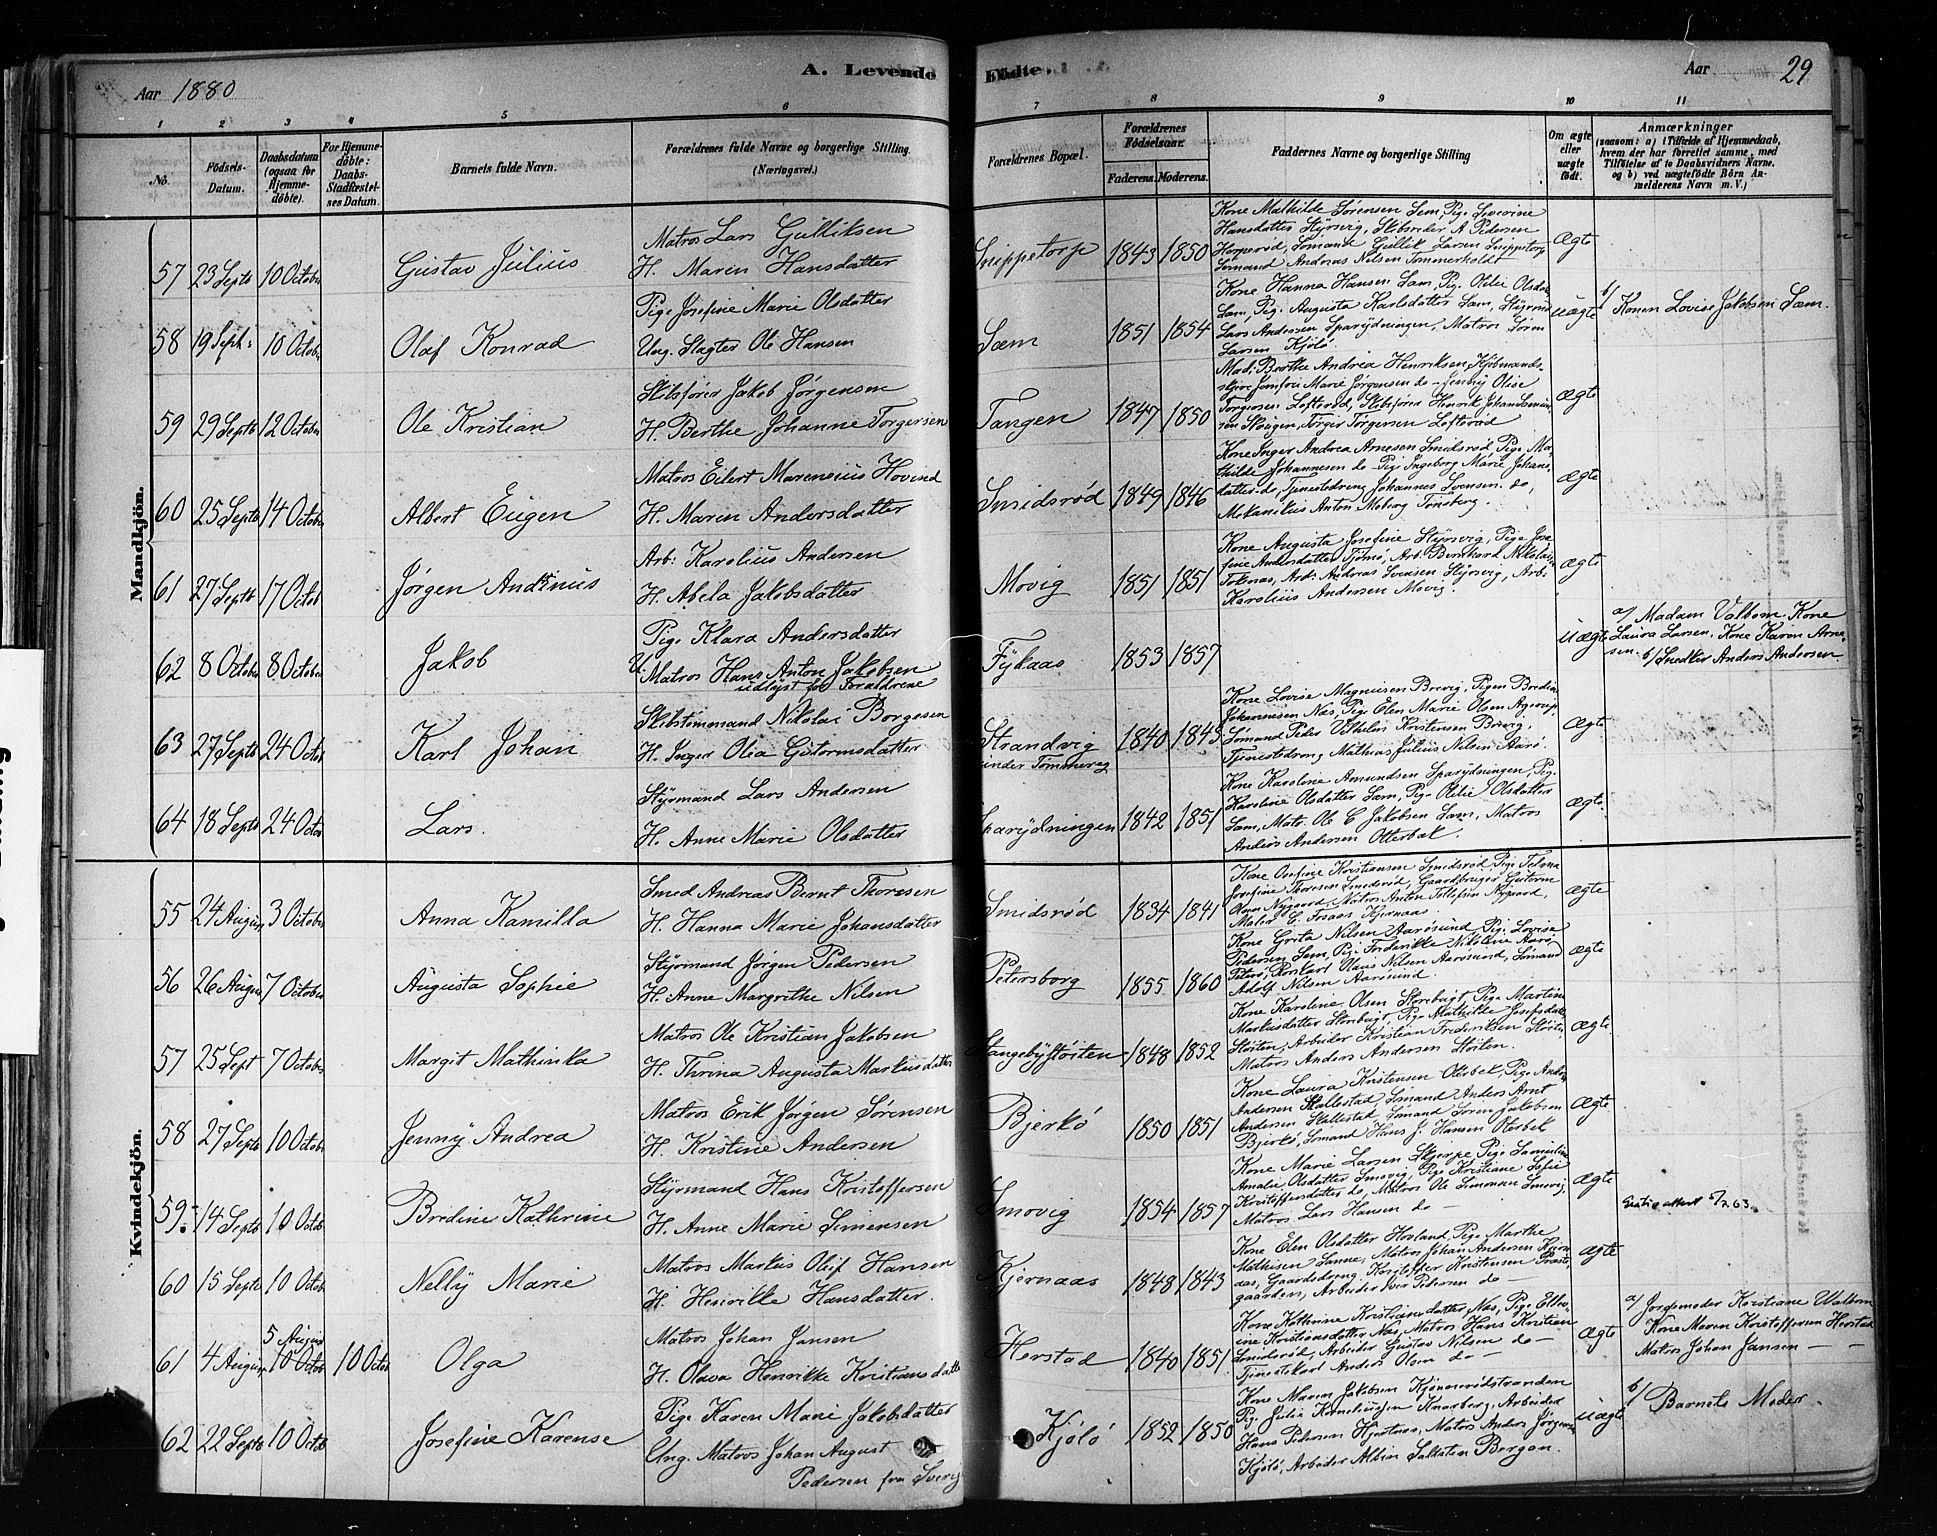 Aar 1880
A. Levende Fødte.
Aar 29
1 2 3 4 5 6 7 8 9 10 11
No.
Fødsels-Datum.
Daabsdatum (ogsaa for Hjemmedøbte).
For Hjemmedøbte: Daabs-Stadfæstelses Datum.
Barnets fulde Navn.
Forældrenes fulde Navne og borgerlige Stilling (Næringsvei.)
Forældrenes Bopæl.
Forældrenes Fødselsaar.
Faderens. Moderens.
Faddernes Navne og borgerlige Stilling
Om ægte eller uægte født.
Anmærkninger
(saasom: a) i Tilfælde af Hjemmedaab, hvem der har forrettet samme, med Tilføielse af to Daabsvidners Navne, og b) ved uægtefødte Børn Anmelderens Navn m. V.)
Mandkjön.
57 23 Septb 10 Octobr Gustav Julius
Matros Lars Gulliksen
H. Maren Hansdatter
Snippetorp 1843 1850
Kone Mathilde Sørensen Sem, Pige Severine
Hansdatter Styrsvig, Skibsreder A Pedersen
Sømand Gullik Larsen Snippetorp
Sømand Andreas Nilsen Tømmerholdt
Ægte
58 19 Septb: 10 Octobr Olaf Konrad
Pige Josefine Marie Olsdatter
Ung. Slagter Ole Hansen
Sæm 1851 1854
Kone Hanna Hansen Sæm, Pige Otilie Olsdat
Sæm, Pige Augusta Karlsdatter Sæm, Styrm
Lars Andersen Sparydningen, Matros Søren
Larsen Kjølø
uægte
b/ Konen Lovise Jakobsen Sæm.
59 29 Septb 12 Octobr Ole Kristian
Skibsfører Jakob Jørgensen
H. Berthe Johanne Torgersen
Tangen 1847 1850
Mad: Berthe Andrea Henriksen, Kjøbmands-
Jomfru Marie Jørgensen do - Jenny Olise
Torgersen Lofterød, Skibsfører Henrik Johan
Skougen, Torger Torgersen Lofterød
ægte
60 25 Septb 14 Octobr Albert Eugen
Matros Eilert Marenius Hovind
H. Maren Andersdatter
Smidsrød 1849 1846
Kone Inger Andrea Arnesen Smidsrød, Pige Ma-
thilde Johannesen do - Pige Ingeborg Marie Johans-
datter do, Tjenestedreng Johannes Svensen do,
Mekanikus Anton Moberg Tønsberg.
ægte
61 27 Septb 17 Octob Jørgen Andrinus
Arb: Karolius Andersen
H. Abela Jakobsdatter
Movig 1851 1851
Kone Augusta Josefine Styrsvig, Pige Jose
fine Andersdatter Tjømø, Arb: Bernhard Nikolai
Toknæs, Arb: Andreas Svensen Styrsvig, Arb:
Karolius Andersen Movig.
ægte
62 8 Octobr 8 Octobr Jakob
Pige Klara Andersdatter
U. Matros Hans Anton Jakobsen
udlyst for Forældrene
Fykaas 1853 1857
uægte
a/ Madam Valbom, Kone
Laura Larsen, Kone Karen Arne-
sen. b/ Snedker Anders Andersen
63 27 Septb 24 Octob Karl Johan
Skibstømmand Nikolai Borgesen
H. Inger Olia Gutormsdatter
Strandvig
under Tømmerag
1840 1845
Kone Lovise Magnusen Brevig, Pigen Bredine
Johannesen Næs, Pige Elen Marie Olsen Agerup,
Sømand Peder Vilhelm Kristensen Brevig,
Tjenestedreng Mathias Julius Nilsen Aarø.
ægte
64 18 Septb 24 Octob Lars.
Styrmand Lars Andersen
H. Anne Marie Olsdatter
Sparydningen 1842 1851
Kone Karoline Amundsen Sparydningen, Pige
Karoline Olsdatter Sæm, Pige Otilie Olsdatter
Sæm, Matr. Ole C Jakobsen Sæm, Matros
Anders Andersen Otterbæk.
ægte.
Kvindekjön.
55 24 August 3 Octobr Anna Kamilla
Smed Andreas Bernt Thoresen
H. Hanna Marie Johansdatter
Smidsrød 1834 1841
Kone Kristiansen Smidsrød, Pige
Josefine Thoresen Smidsrød, Gaardbruger Gutorm
Olsen Nygaard, Matros Anton Tollefsen Nygaard,
Maler C. Kjernaas.
ægte
56 26 August 7 Octobr Augusta Sophie
Styrmand Jørgen Pedersen
H. Anne Margrethe Nilsen
Petersborg 1855. 1860
Kone Grete Nilsen Aarøsund, Pige Lovise
Pedersen Sem, Pige Frederikke Nikoline Aarø
Olaus Nilsen Aarøsund, Sømand
Adolf Nilsen Aarøsund.
ægte
57 25 Sept 7 Octobr Margit Mathinka
Matros Ole Kristian Jakobsen
H. Thrina Augusta Markusdatter
Stangebyftøiten 1848 1852
Kone Karoline Olsen Storebugt, Pige Martine
Markusdatter Storebugt, Pige Mathilde Josefsdatt
Støiten, Arbeider Kristian Frederiksen Støiten
Matros Anders Andersen Støiten.
ægte.
58 27 Septb 10 Octobr Jenny Andrea
Matros Erik Jørgen Sørensen
H. Kristine Andersen
Bjerkø 1850 1851
Kone Laura Kristensen Oterbek, Pige
Andersen Skallestad, Sømand Anders Arnt
Andersen Skallestad Sømand Søren Jakobsen
Bjerkø, Sømand Hans J. Hansen Oterbek
ægte
59. 14 Septb 10 Octob Bredine Kathrine
Styrmand Hans Kristoffersen
H. Anne Marie Simensen
Smovig 1854 1857
Kone Marie Larsen Skjerpe, Pige
Amalie Olsdatter Smovig, Pige Kristiane Sofie
Kristoffersdatter do, Matros Ole Simonsen Smovig,
Matros Lars Hansen do -
ægte
Gratis attest 5/2 63.
60 15 Septb 10 Octob Nelly Marie
Matros Markus Oluf Hansen
H. Henrikke Hansdatter.
Kjernaas 1848 1843
Kone Elen Olsdatter Hovland, Pige Marthe
Mathisen Sanne, Matros Johan Andersen
Gaardsdreng Kristoffer Kristensen Præste-
gaarden, Arbeider Iver Pedersen do -
ægte
61 4 August 5 August 10 Octob 10 Octob Olga
Matros Johan Jansen
H. Olava Henrikke Kristiansdatter
Herstad 1840 1851
Kone Kathrine Kristiansdatter Næs, Pige Elle-
ine Kristiansdatter Næs, Matros Hans Kristian
Smidsrød, Arbeider Gustav Nilsen do -
Tjenestekarl Anders Olsen do -
ægte
a/ Jordemoder Kristiane Walbom
Kone Maren Kristoffersen Herstad
Matros Johan Jansen - -
62 22 Septb 10 Octob Josefine Karense
Pige Karen Marie Jakobsdatter
Ung. Matros Johan August
Pedersen fra Sverig
Kjølø 1852 1850
Kone Maren Jakobsen Kjønnerødstranden
Pige Julia Kornelius Knarberg, Arbeider
Hans Pedersen Hjertnæs, Matros Anders Jørgensen
Kjølø, Arbeider Albin Bergan.
uægte
b/ Barnets Moder.